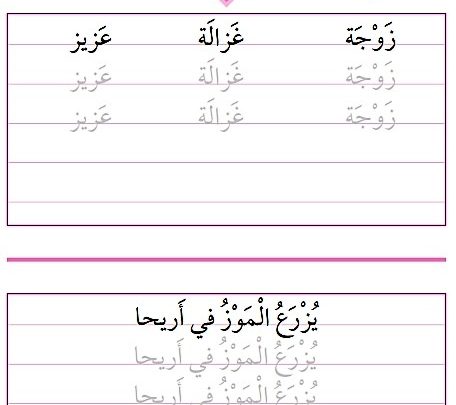 زَوْجَة غَزالَة عَزيز
زَوْجَة غَزالَة عَزيز
زَوْجَة غَزالَة عَزيز
يُزْرَعُ الْمَوْزُ في أَريحا
يُزْرَعُ الْمَوْزُ في أَريحا
يُزْرَعُ الْمَوْزُ في أَريحا